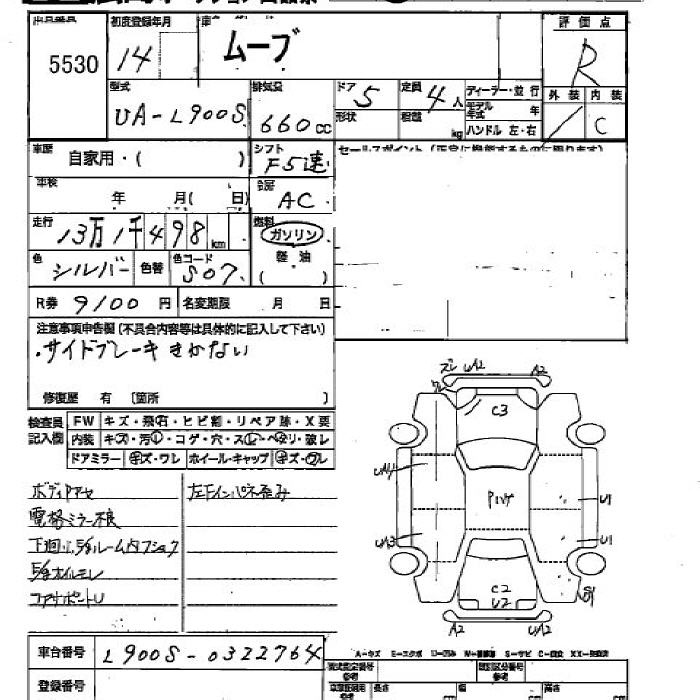 出品番号 初度登録年月 車名 評価点
5530 14 ムーブ R
型式 排気量 ドア 5 定員 4人 ディーラー・並行 外装 内装
UA-L900S 660cc 形状 積載 kg モデル年式 年 C
ハンドル 左・右
車歴 自家用・( ) シフト F5速 セールスポイント(正常に機能するものに限ります)
車検 年 月( 日) 冷房 AC
走行 13万1千498km 燃料 ガソリン
軽油
色 シルバー 色替 色コード S07 ( )
R券 9100円 名変期限 月 日
注意事項申告欄(不具合内容等は具体的に記入して下さい)
・サイドブレーキきかない
修復歴 有 〔箇所 〕
検査員記入欄 FW キズ・飛石・ヒビ割・リペア跡・X要
内装 キズ・汚レ・コゲ・穴・スレ・ヘタリ・破レ
ドアミラー キズ・ワレ ホイール・キャップ キズ・ワレ
ボディアセ 左Fインパネ歪み
電格ミラー不良
E/gオイルモレ
コアサポートU
ズレ UA2 A2
C3
UA4 Pハゲ U1
UA3 U1
C2
U2
A2 UA2
車台番号 L900S-0322764
A-キズ E-エクボ U-凹み
登録番号
長さ 幅 高さ